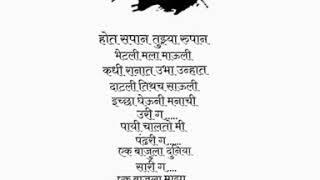 होत सपान तुझ्या रुपान
भेटली मला माऊली
कधी रानात उभा उन्हात
दाटली तिथच साऊली
इच्छा घेऊनी मनाची
उरी ग.....
पायी चालतो मी
पंढरी ग......
एक बाजुला दुनिया
सारी ग....
एक बाजुला माझा